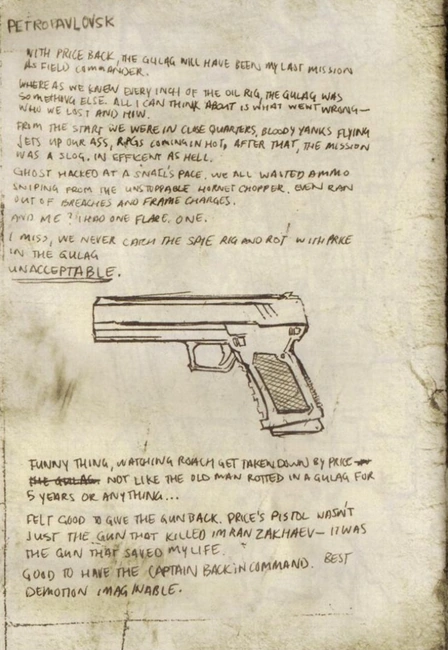 PETROPAVLOVSK
WITH PRICE BACK, THE GULAG WILL HAVE BEEN MY LAST MISSION
AS FIELD COMMANDER.
WHERE AS WE KNEW EVERY INCH OF THE OIL RIG, THE GULAG WAS
SOMETHING ELSE. ALL I CAN THINK ABOUT IS WHAT WENT WRONG—
WHO WE LOST AND HOW.
FROM THE START WE WERE IN CLOSE QUARTERS, BLOODY YANKS FLYING
JETS UP OUR ASS, RPGS COMING IN HOT, AFTER THAT, THE MISSION
WAS A SLOG. IN EFFICENT AS HELL.
GHOST HACKED AT A SNAIL'S PACE. WE ALL WASTED AMMO
SNIPING FROM THE UNSTOPPABLE HORNET CHOPPER. EVEN RAN
OUT OF BREACHES AND FRAME CHARGES.
AND ME? I HAD ONE FLARE. ONE.
I MISS, WE NEVER CATCH THE SPIE RIG AND ROT WITH PRICE
IN THE GULAG
UNACCEPTABLE.
FUNNY THING, WATCHING ROACH GET TAKEN DOWN BY PRICE
THE GULAG. NOT LIKE THE OLD MAN ROTTED IN A GULAG FOR
5 YEARS OR ANYTHING...
FELT GOOD TO GIVE THE GUN BACK. PRICE'S PISTOL WASN'T
JUST THE GUN THAT KILLED IMRAN ZAKHAEV— IT WAS
THE GUN THAT SAVED MY LIFE.
GOOD TO HAVE THE CAPTAIN BACK IN COMMAND. BEST
DEMOTION IMAGINABLE.